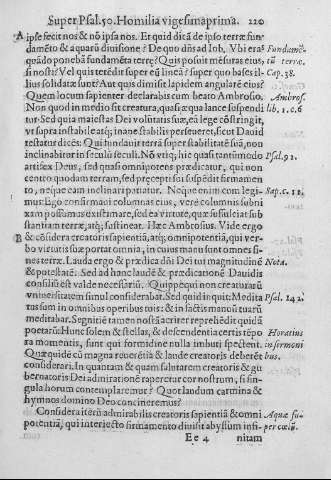 Super Psal. 50. Homilia vigesimaprima. 220
A ipse fecit nos & nõ ipsa nos. Et quid dicã de ipso terræ fun-
damẽto & aquarũ divisione? De quo dñs ad Iob, Vbi eras Fundamẽ-
quãdo ponebã fundamẽta terræ? Quis posuit mẽsuras eius, tũ terræ.
si nosti? Vel quis tetẽdit super eũ lineã? super quo bases il- Cap. 38.
lius solidatæ sunt? Aut quis dimisit lapidem angularẽ eius?
Quem locum sapienter declarabis cum beato Ambrosio. Ambros.
Non quod in medio sit creatura, quasi æqua lance suspendi lib. 1. c. 6
tur. Sed quia maiestas Dei volũtatis suæ, eã lege cõstringit,
vt supra instabile atq; inane stabilis perseueret, sicut Dauid
testatur dicẽs: Qui fundauit terrã super stabilitatẽ suã, non
inclinabitur in seculũ seculi. Nõ vtiq; hic quasi tantũmodo Psal. 92.
artifex Deus, sed quasi omnipotens prædicatur, qui non
centro quodam terram, sed præcepti sui suspẽdit firmamen
to, neque eam inclinari patiatur. Neque enim cum legi- Sap. c. 11.
mus: Ego confirmaui columnas eius, verè columnis subni
xam possumus existimare, sed ea virtute, quæ fulsit substantiam terræ, atq; sustineat. Hæc Ambrosius. Vide ergo
B & cõsidera creatoris sapientiã, atq; omnipotentiã, qui ver-
bo virtutis suæ portat omnia, in cuius manu sunt omnes fi-
nes terræ. Lauda ergo & prædica dñi Dei tui magnitudinẽ Nota.
& potestatẽ. Sed ad hanc laudẽ & prædicationẽ Dauidis
consiliũ est valde necessariũ. Quippe qui non creaturarũ
vniuersitatem simul considerabat. Sed quid inquit: Medita Psal. 142.
tus sum in omnibus operibus tuis: & in factis manuũ tuarũ
meditabar. Segnitiẽ amen nostrã acriter reprehẽdit quidã
poetarũ: Hunc solem & stellas, & descendentia certis tẽpo Horatius
ra momentis, sunt qui formidine nulla imbuti spectent. in sermoni
Quæ quidẽ cũ magna reuerẽtia & laude creatoris deberẽt bus.
considerari. In quantam & quam salutarem creatoris & gu
bernatoris Dei admirationẽ raperetur cor nostrum, si sin-
gula horum contemplaremur? Quot laudum carmina &
hymnos domino Deo concineremus?
Considera iterũ admirabilis creatoris sapientiã & omni Aquæ su-
potentiã, qui interiecto firmamento diuisit abyssum infi- per cœlũ.
Ee 4 nitam